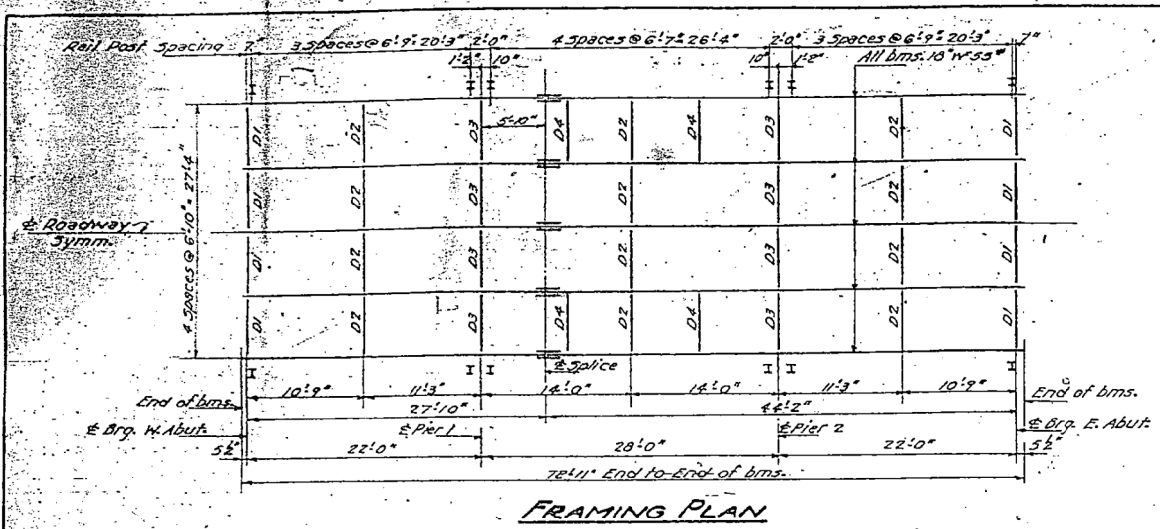 Rail Post Spacing 7" 3 Spaces @ 6'-9"= 20'-3" 2'-0" 4 Spaces @ 6'-7"= 26'-4" 2'-0" 3 Spaces @ 6'-9"= 20'-3" 7"
1'-2" 10" 10" 1'-2" All bms. 18" W 55#
5'-10"
D1 D2 D3 D4 D2 D4 D3 D2 D1
D1 D2 D3 D2 D3 D2 D1
℄ Roadway
Symm.
4 Spaces @ 6'-10" = 27'-4"
D1 D2 D3 D2 D3 D2 D1
D1 D2 D3 D4 D2 D4 D3 D2 D1
℄ Splice
10'-9" 11'-3" 14'-0" 14'-0" 11'-3" 10'-9"
End of bms. 27'-10" 44'-2" End of bms.
℄ Brg. W. Abut. ℄ Pier 1 ℄ Pier 2 ℄ Brg. E. Abut.
5½" 22'-0" 28'-0" 22'-0" 5½"
72'-11" End to End of bms.
FRAMING PLAN